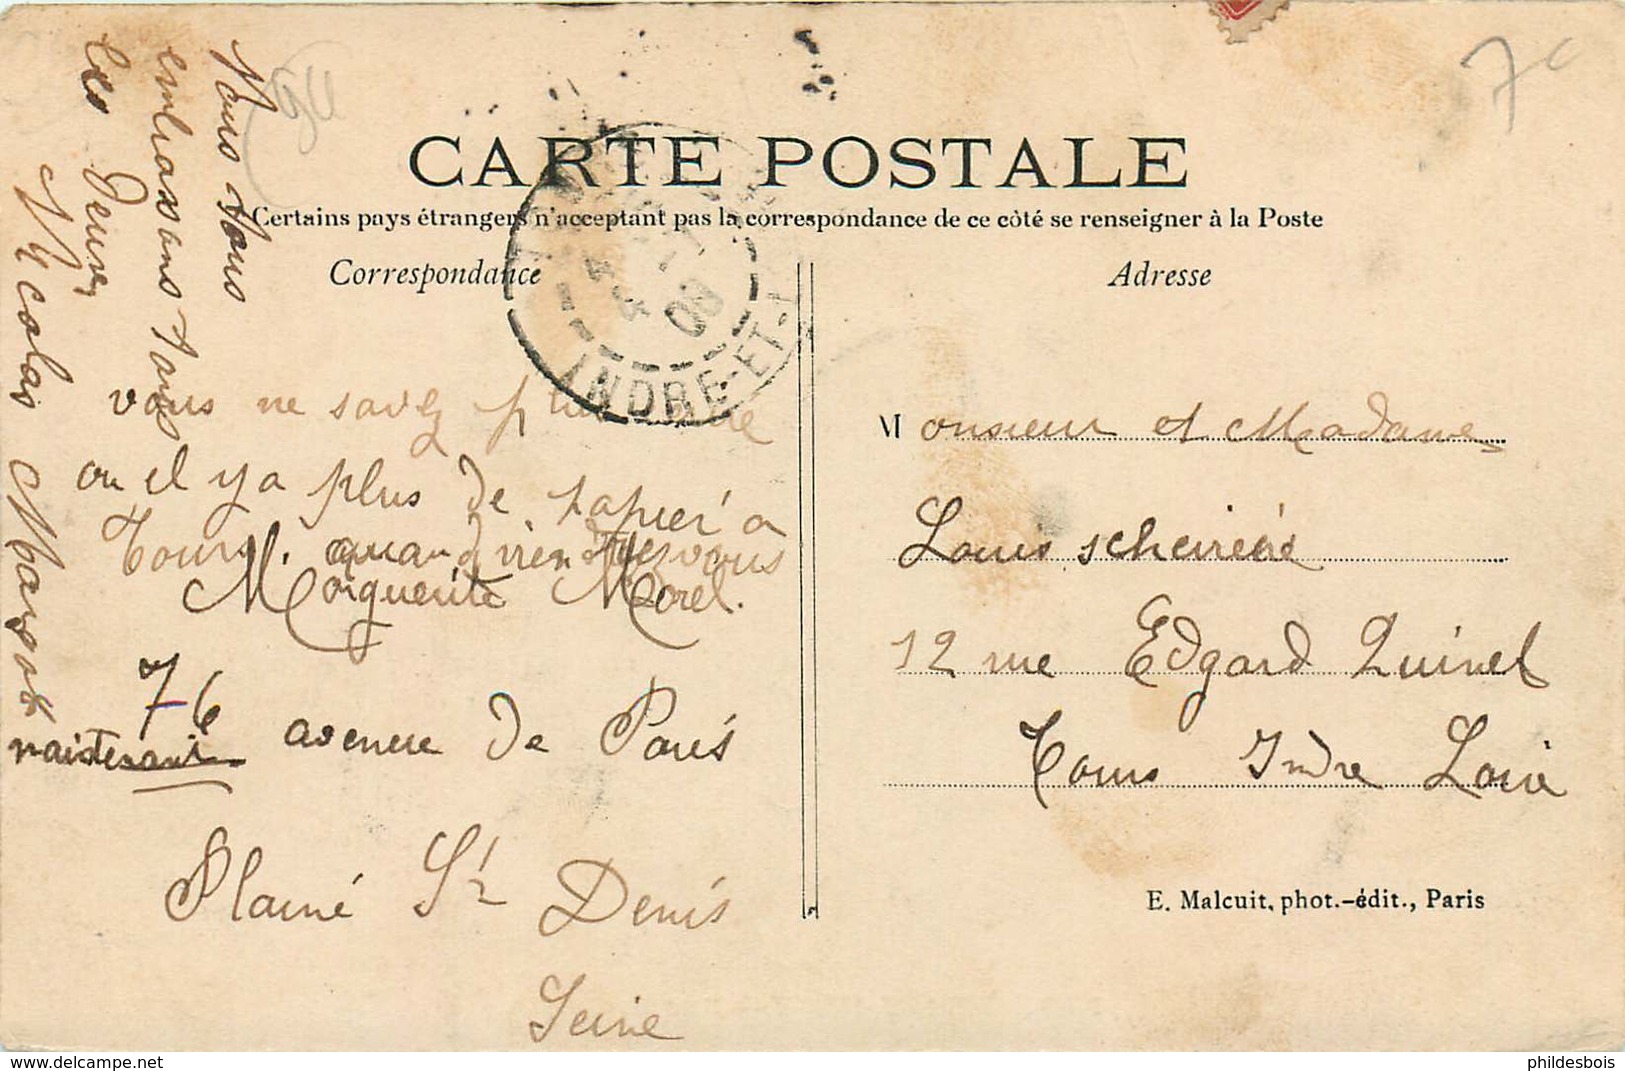 CARTE POSTALE
Certains pays étrangers n'acceptant pas la correspondance de ce côté se renseigner à la Poste
Correspondance
Adresse
INDRE-ET-L
09
7 c
Nous vous
embrassons tous
les deux
Nicolas Margot
vous ne savez plus
ou il y a plus de papier a
Tours. quand viendrez vous
M. Morguerite Morel.
76 avenue de Paris
maintenant
Plaine St Denis
Seine
Monsieur et Madame
Louis
12 rue Edgard Quinet
Tours Indre Loire
E. Malcuit, phot.-édit., Paris
phildesbois
https://www.delcampe.net